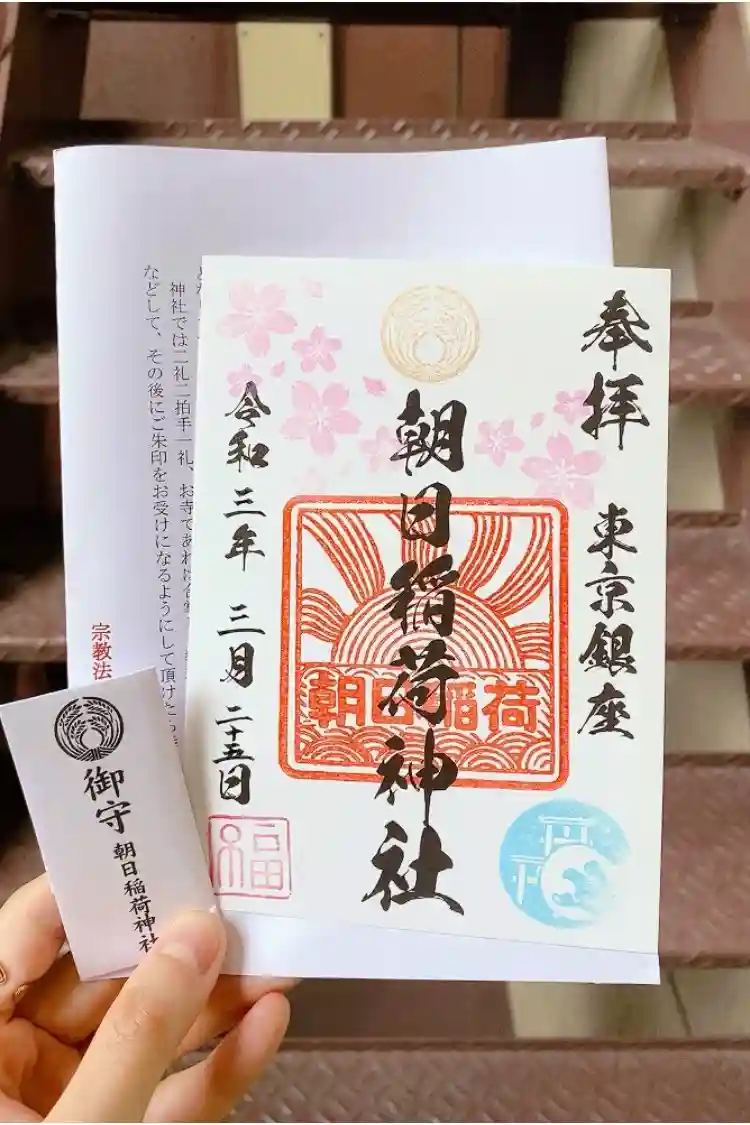 奉拝
東京銀座
朝日稲荷神社
朝日稲荷
令和三年 三月 二十五日
福
神社では二礼二拍手一礼、お寺であれば合掌
などして、その後にご朱印をお受けになるようにして頂けたら
宗教法
御守
朝日稲荷神社